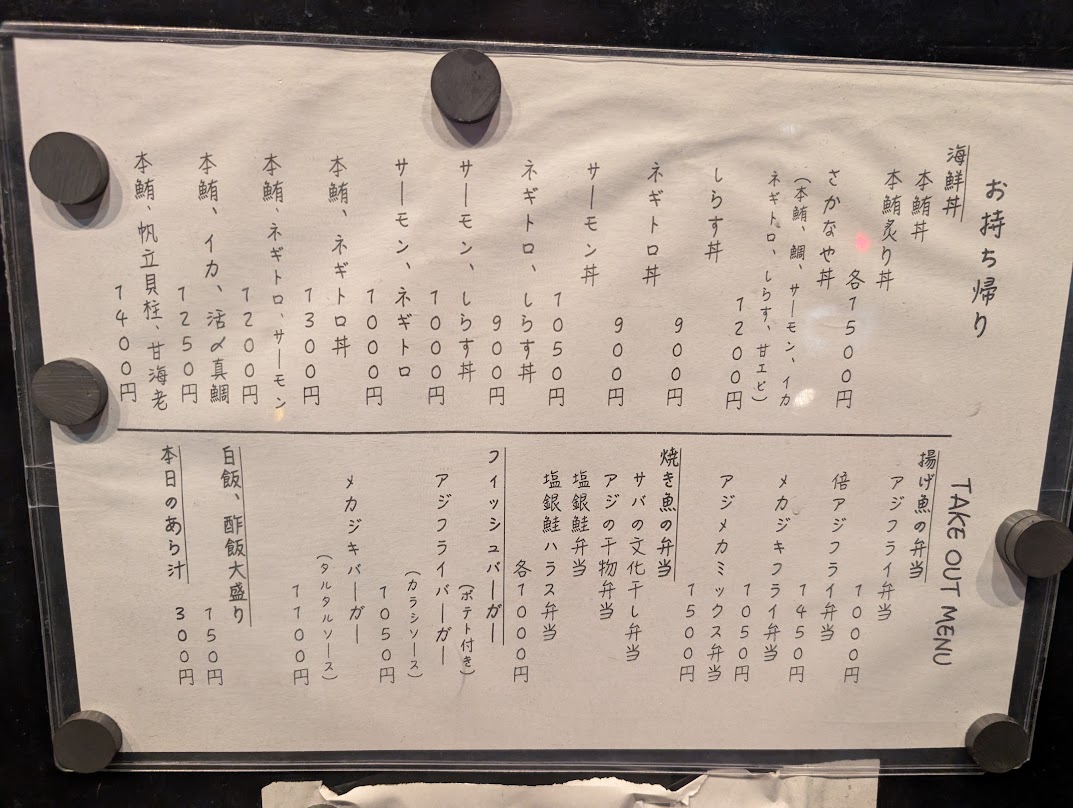 お持ち帰り
海鮮丼
本鮪丼
本鮪炙り丼
各1500円
さかなや丼
(本鮪、鯛、サーモン、イカ
ネギトロ、しらす、甘エビ)
1200円
しらす丼
900円
ネギトロ丼
900円
サーモン丼
1050円
ネギトロ、しらす丼
900円
サーモン、しらす丼
1000円
サーモン、ネギトロ
1000円
本鮪、ネギトロ丼
1300円
本鮪、ネギトロ、サーモン
1200円
本鮪、イカ、活〆真鯛
1250円
本鮪、帆立貝柱、甘海老
1400円
TAKE OUT MENU
揚げ魚の弁当
アジフライ弁当
1000円
倍アジフライ弁当
1450円
メカジキフライ弁当
1050円
アジメカミックス弁当
1500円
焼き魚の弁当
サバの文化干し弁当
アジの干物弁当
塩銀鮭弁当
塩銀鮭ハラス弁当
各1000円
フィッシュバーガー
(ポテト付き)
アジフライバーガー
(カラシソース)
1050円
メカジキバーガー
(タルタルソース)
1100円
白飯、酢飯大盛り
150円
本日のあら汁
300円